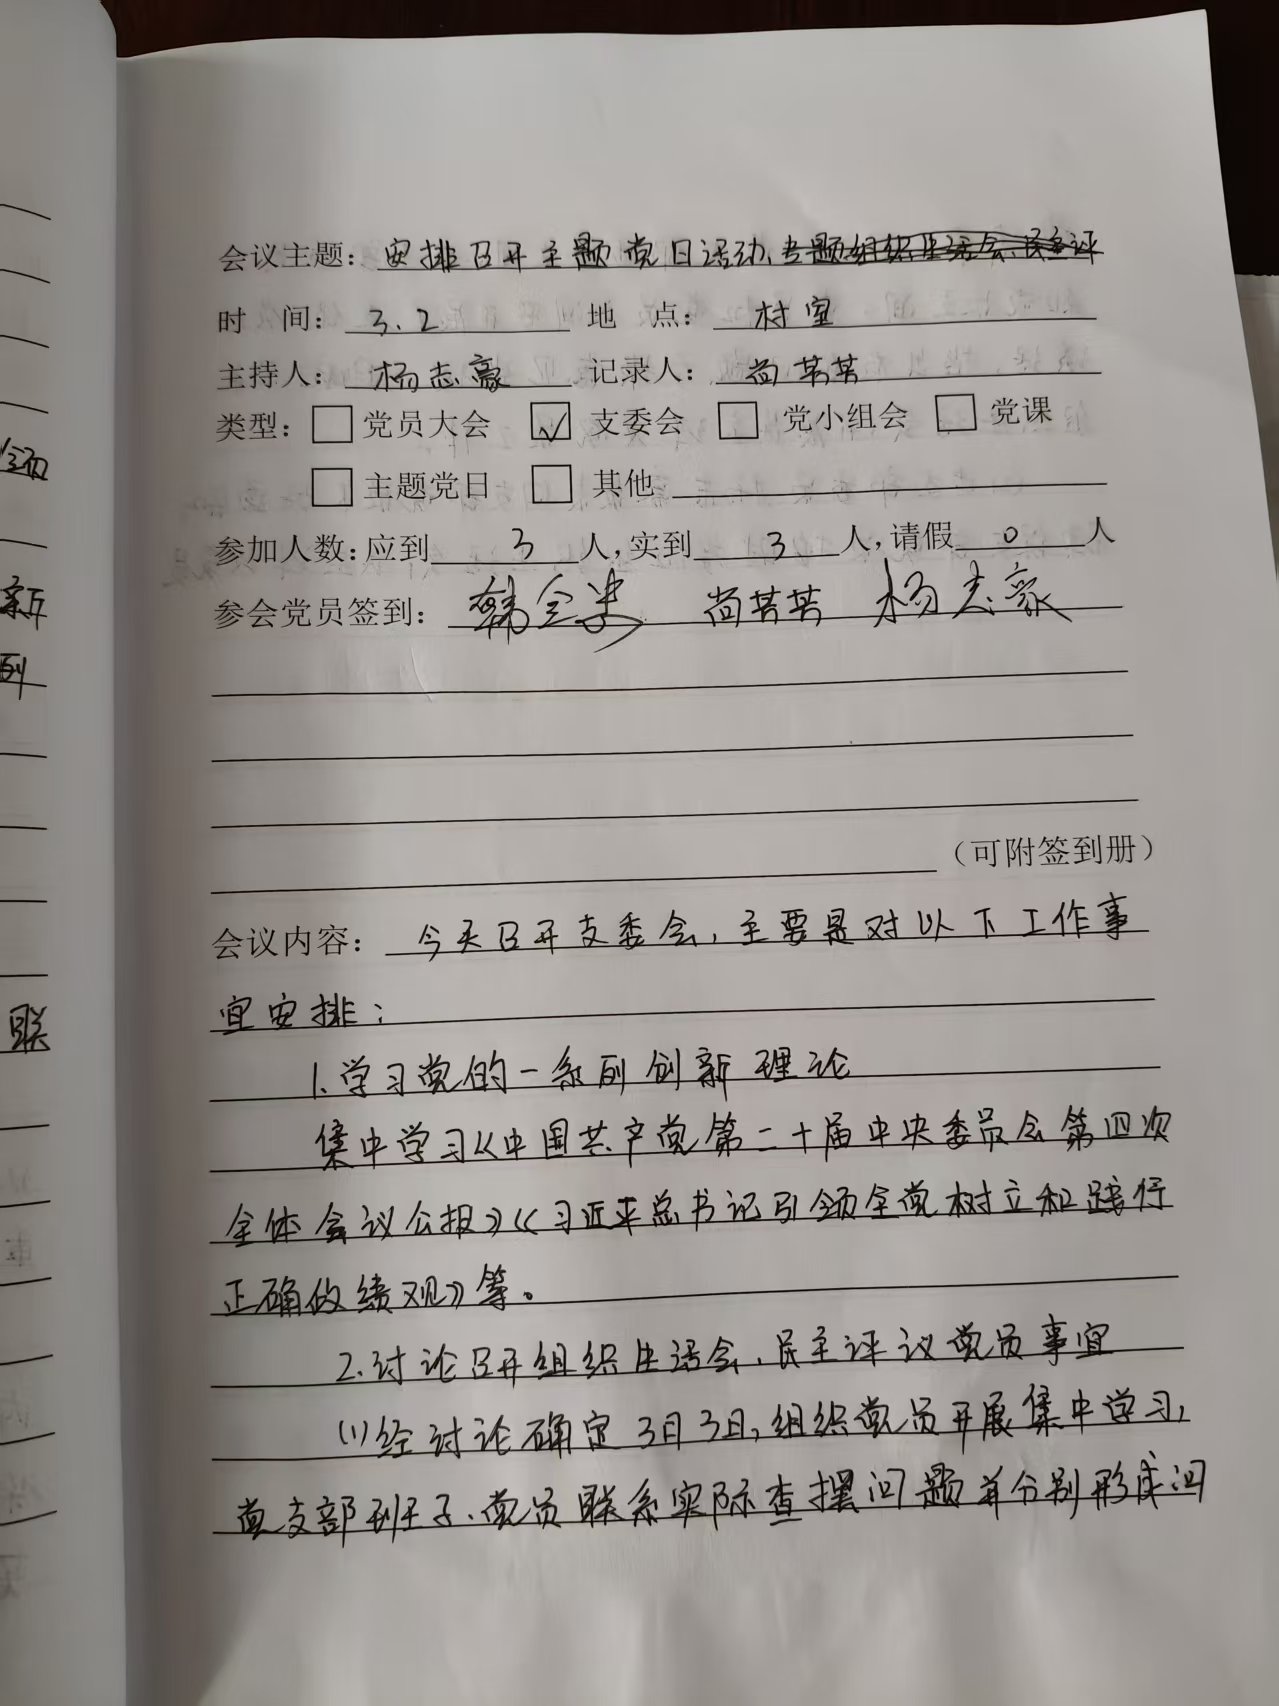 会议主题：安排召开主题党日活动、专题组织生活会、民主评
时 间：3.2 地 点：村室
主持人：杨志豪 记录人：尚苦苦
类型：□党员大会 ☑支委会 □党小组会 □党课
□主题党日 □其他
参加人数：应到 3 人，实到 3 人，请假 0 人
参会党员签到：韩全 尚苦苦 杨志豪
（可附签到册）
会议内容：今天召开支委会，主要是对以下工作事
宜安排：
1.学习党的一系列创新理论
集中学习《中国共产党第二十届中央委员会第四次
全体会议公报》《习近平总书记引领全党树立和践行
正确政绩观》等。
2.讨论召开组织生活会、民主评议党员事宜
(1)经讨论确定3月3日，组织党员开展集中学习，
党支部班子、党员联系实际查摆问题并分别形成问
新
列
联